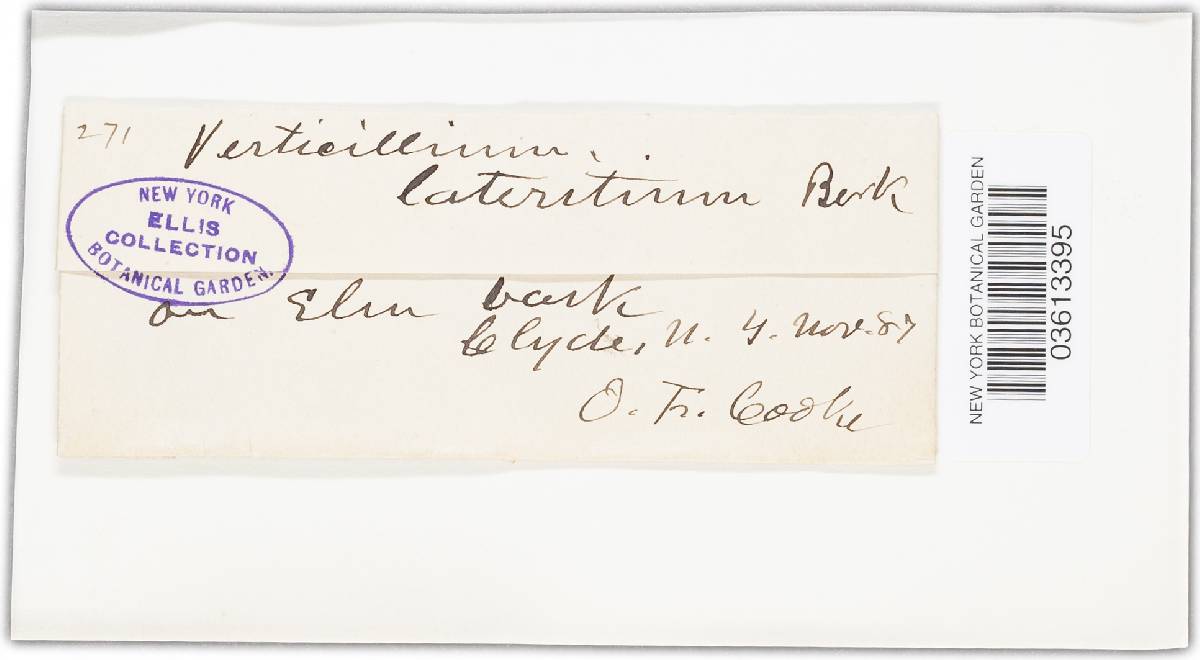 271
Verticillium
lateritium Berk
NEW YORK
ELLIS
COLLECTION
BOTANICAL GARDEN.
on Elm bark
Clyde, N. Y. Nov. 87
O. F. Cooke
NEW YORK BOTANICAL GARDEN
03613395